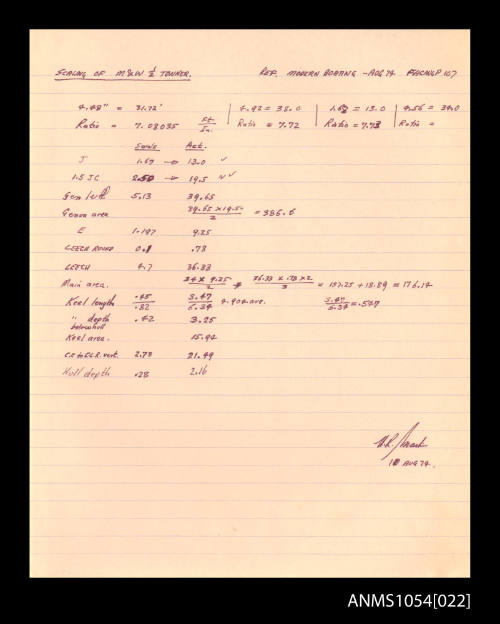 SCALING OF M&W ½ TONNER. REF. MODERN BOATING - AUG 74 P107
4.48" = 31.72' | 4.92 = 38.0 | 1.68 = 13.0 | 4.56 = 34.0
Ratio = 7.08035 Ft/In. | Ratio = 7.72 | Ratio = 7.73 | Ratio =
Scale Act.
J 1.67 → 13.0 ✓
1.5 JC 2.50 → 19.5
Gen luff 5.13 39.65
Genoa area 39.65 x 19.5/2 = 386.6
E 1.197 9.25
LEECH ROUND 0.1 .78
LEECH 4.7 36.33
Main area. 34 x 9.25/2 + 36.33 x .78 x 2/3 = 157.25 + 18.89 = 176.14
Keel lengths .45/.82 3.47/6.34 4.904 ave. 3.47/6.34 = .547
" depth .42 3.25
below hull
Keel area. 15.94
C.E to C.L.R. vert. 2.78 21.49
Hull depth .28 2.16
AUG 74.
ANMS1054[022]